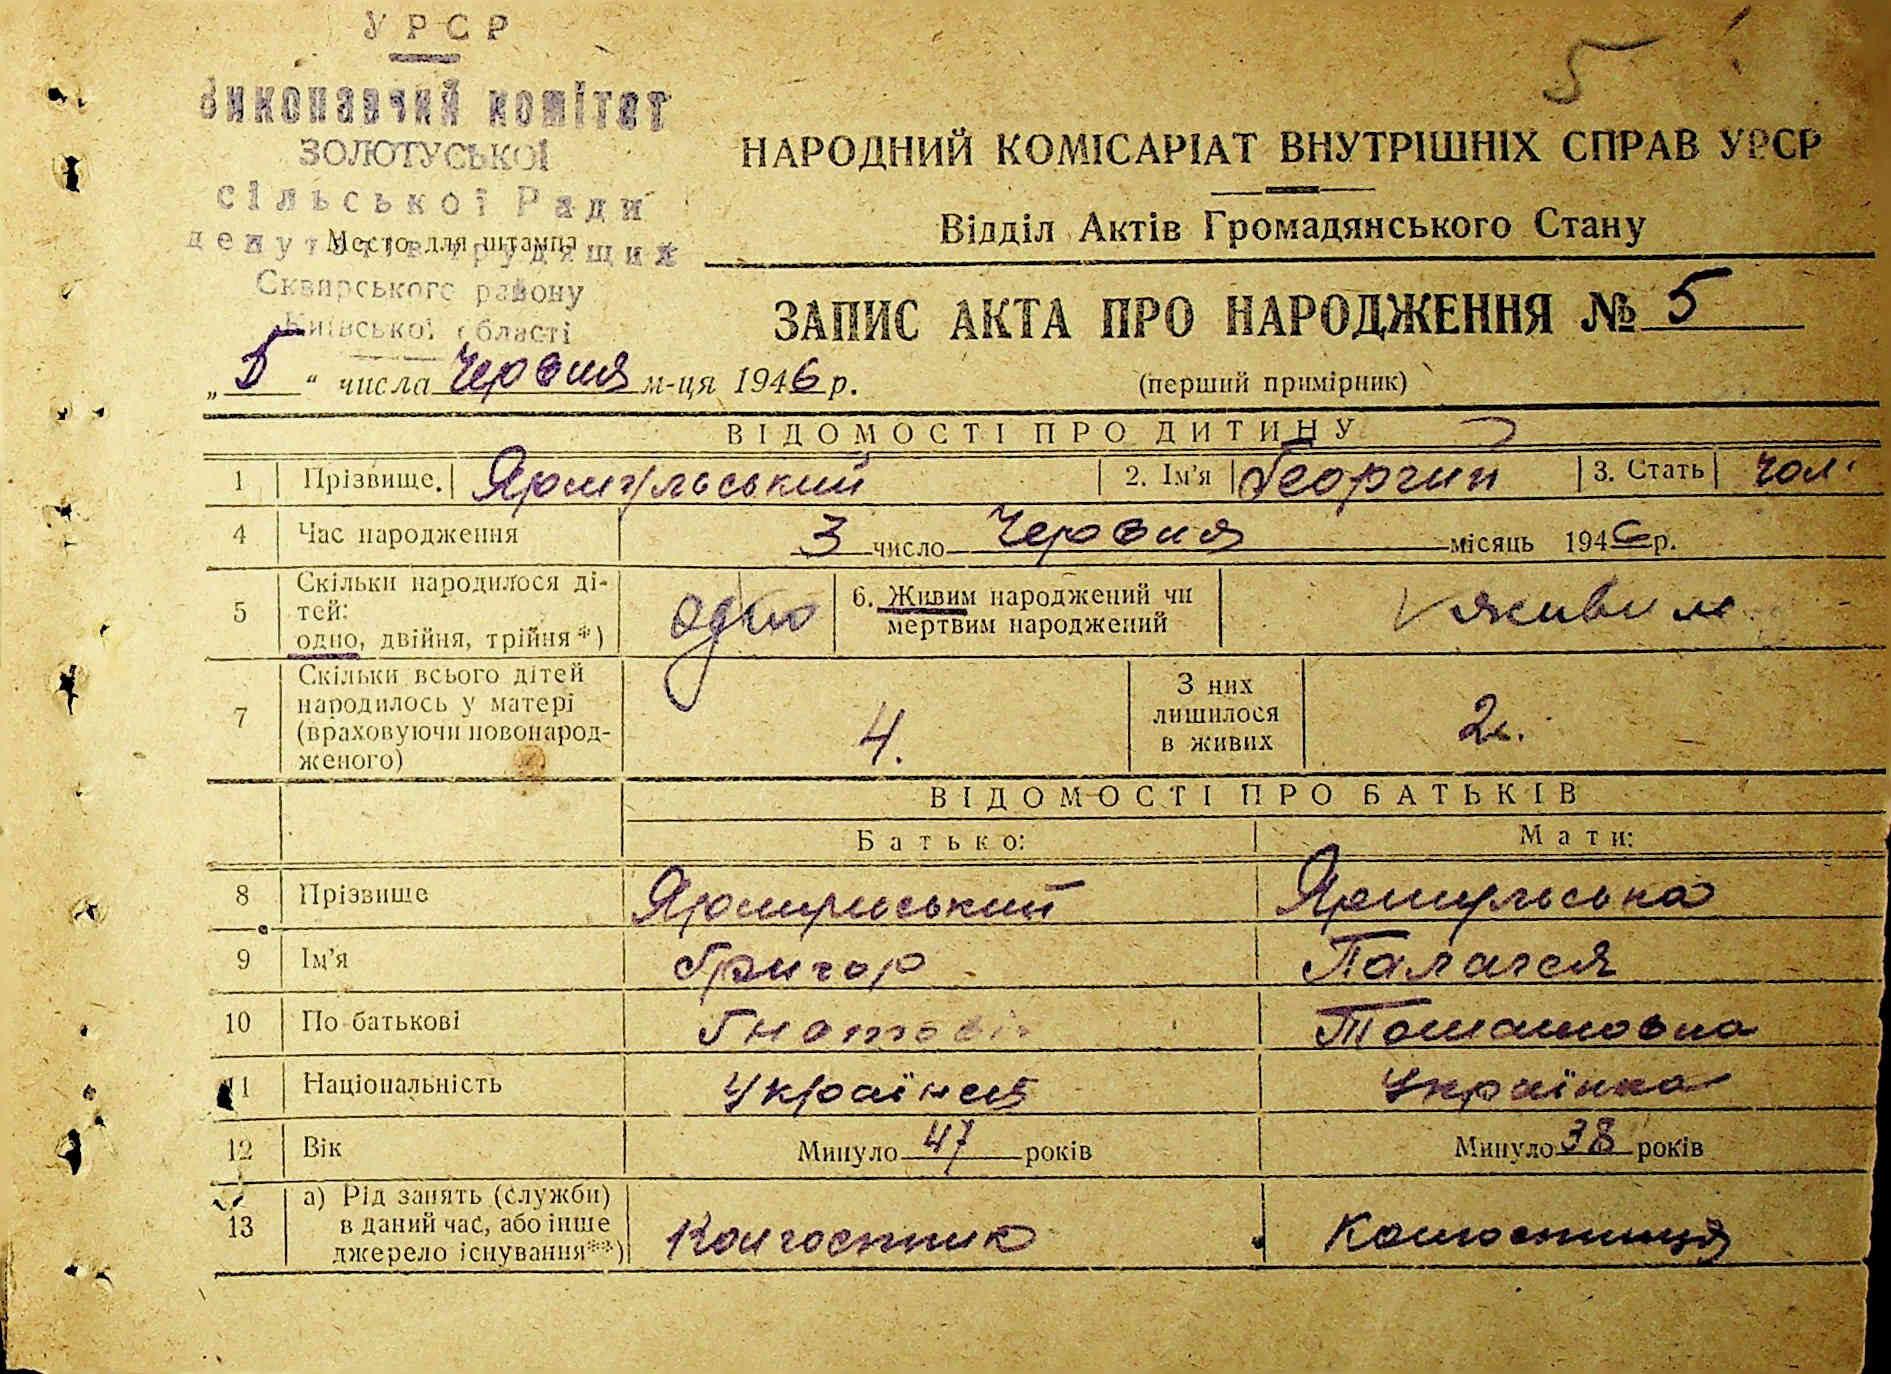 УРСР
5
виконавчий комітет
ЗОЛОТУСЬКОЇ
сільської Ради
НАРОДНИЙ КОМІСАРІАТ ВНУТРІШНІХ СПРАВ УРСР
Место для штампа
депутатів трудящих
Відділ Актів Громадянського Стану
Сквирського району
Київської області
ЗАПИС АКТА ПРО НАРОДЖЕННЯ № 5
„ 5 “ числа Червня м-ця 1946 р.
(перший примірник)
ВІДОМОСТІ ПРО ДИТИНУ
1 Прізвище. Ярмульський 2. Ім'я Георгий 3. Стать чол.
4 Час народження 3 число Червня місяць 1946 р.
5 Скільки народилося ді-
тей:
одно, двійня, трійня*) одно
6. Живим народжений чи
мертвим народжений живим
7 Скільки всього дітей
народилось у матері
(враховуючи новонарод-
женого) 4.
З них
лишилося
в живих 2.
ВІДОМОСТІ ПРО БАТЬКІВ
Батько: Мати:
8 Прізвище Ярмульський Ярмульська
9 Ім'я Григор Палагея
10 По-батькові Гнатовіч Томашовна
11 Національність Українец Українка
12 Вік Минуло 47 років Минуло 38 років
13 а) Рід занять (служби)
в даний час, або інше
джерело існування**) Колгоспник Колгоспниця